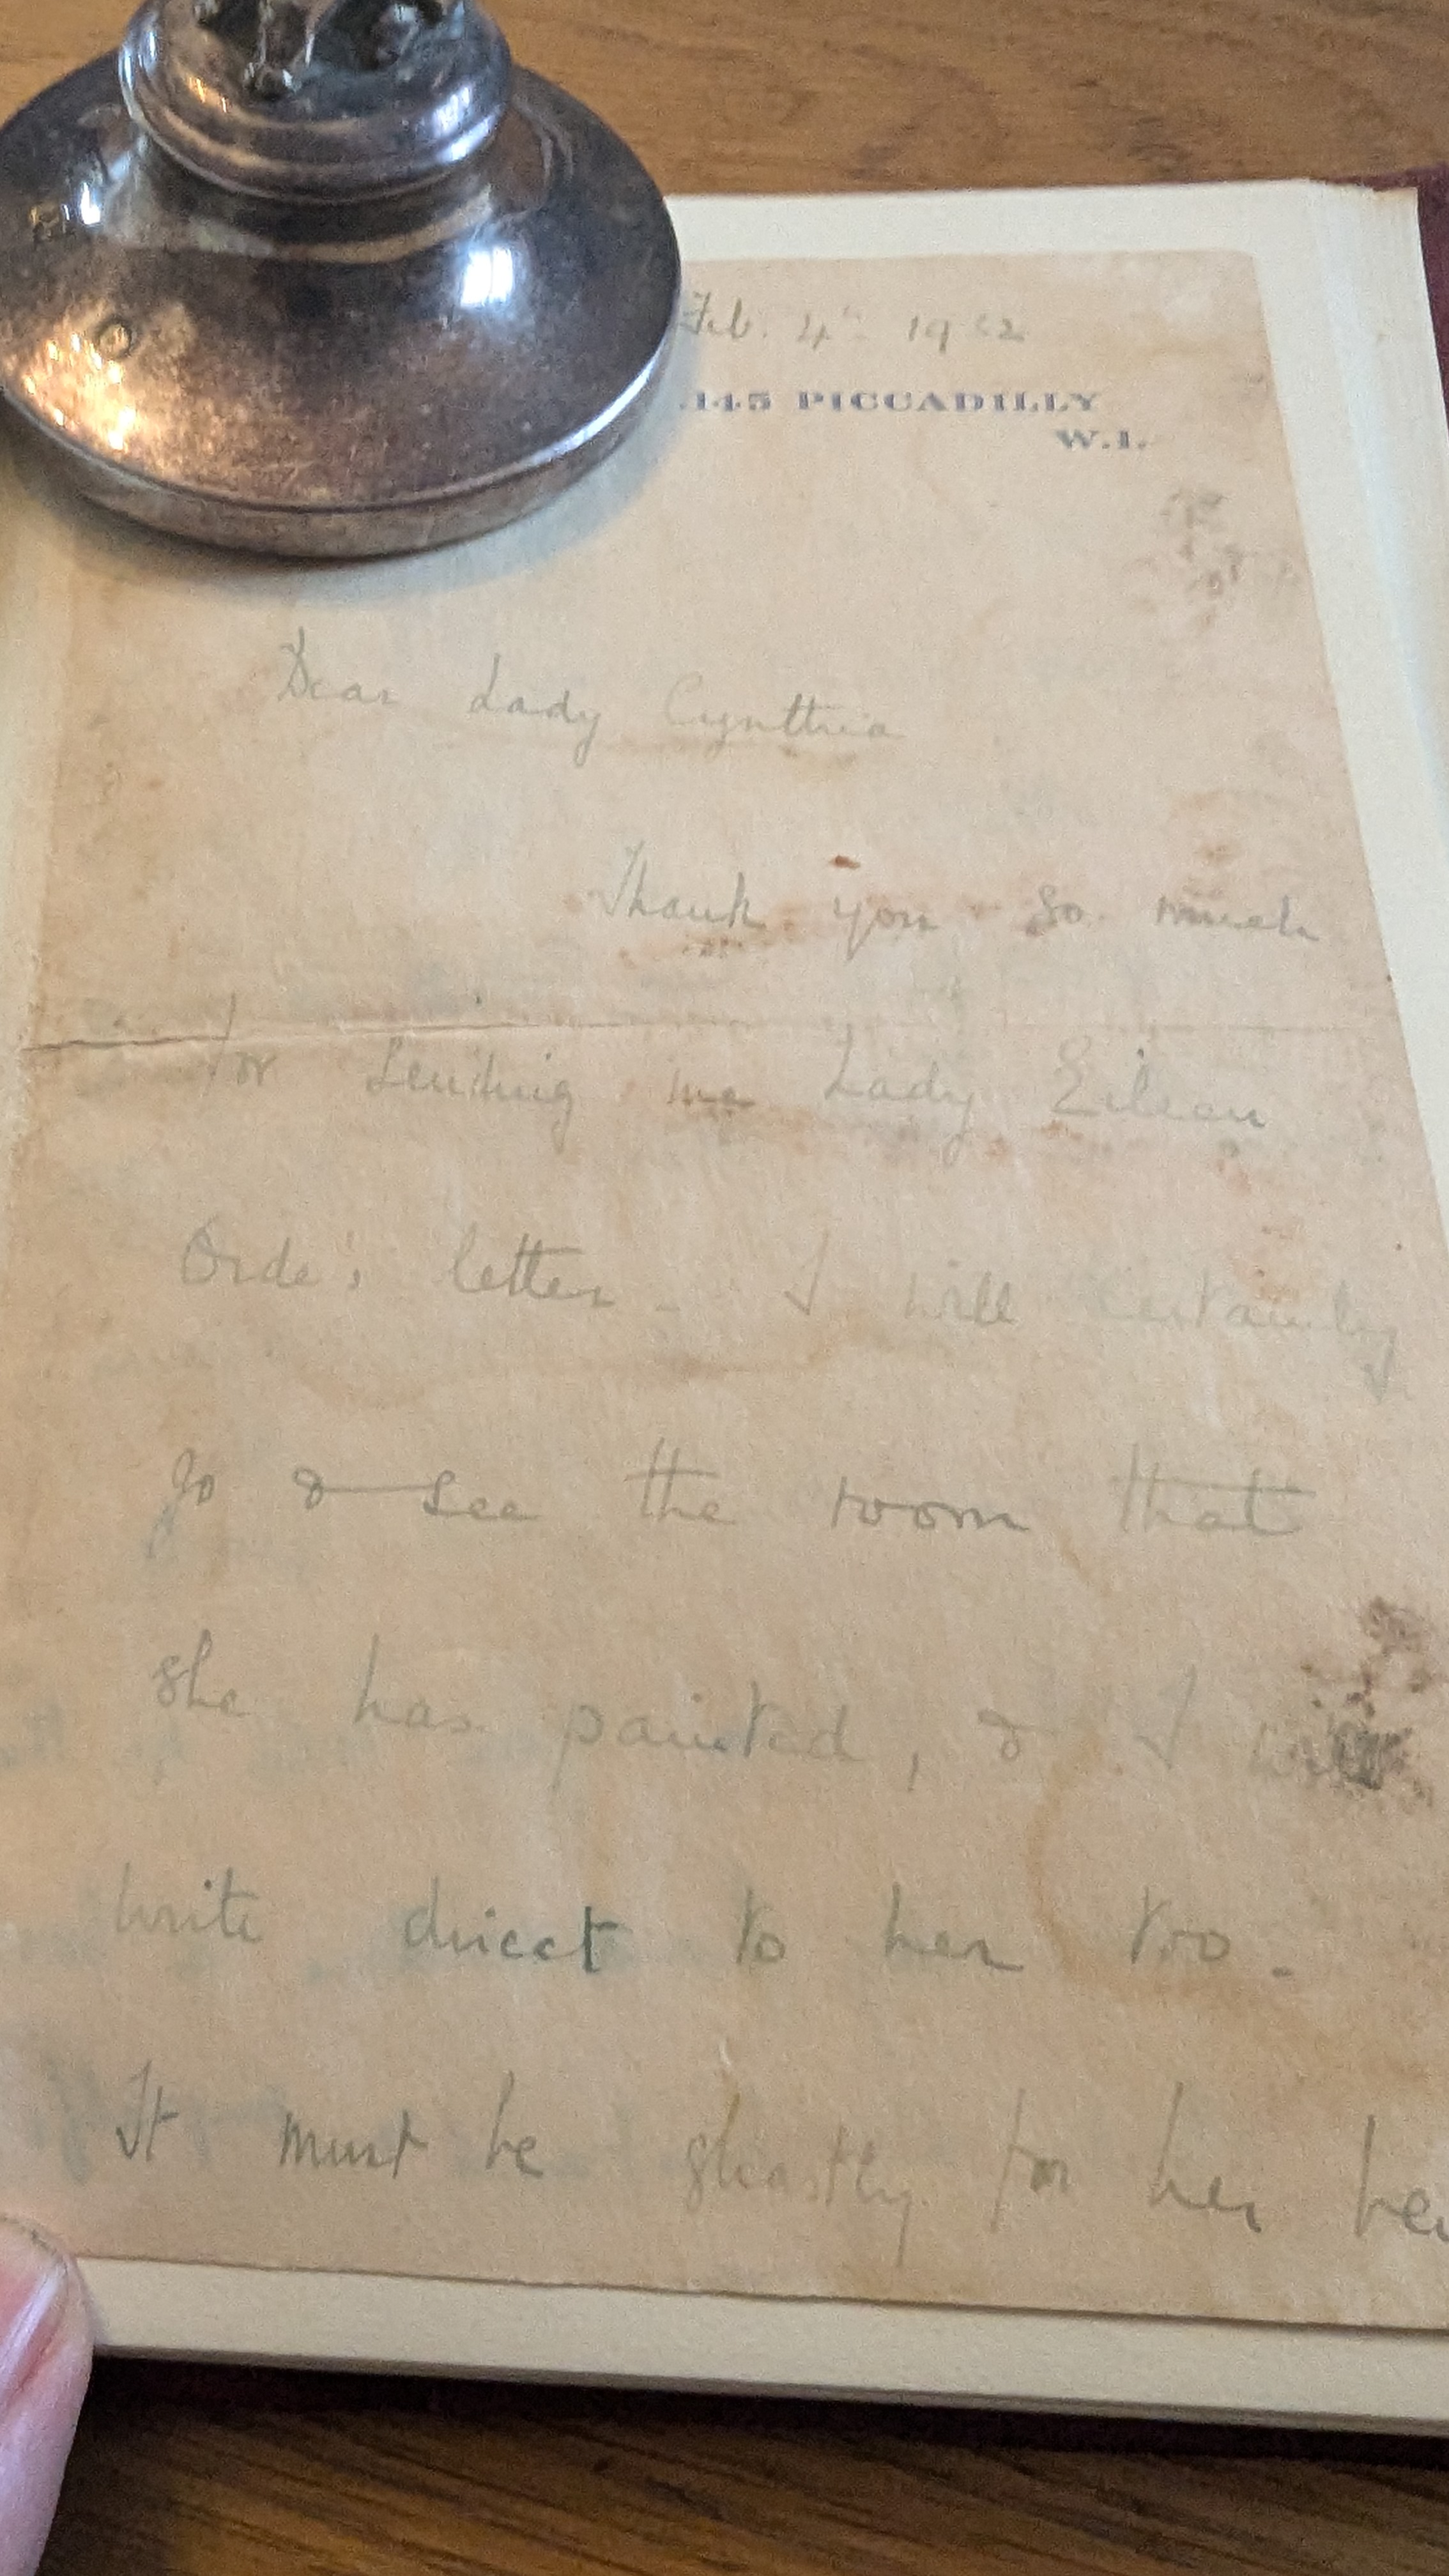 Feb. 4th 1932
145 PICCADILLY
W.1.
Dear Lady Cynthia
Thank you so much
for sending me Lady Eileen
Orde's letter - I will certainly
go & see the room that
she has painted, & I will
write direct to her too.
It must be ghastly for her